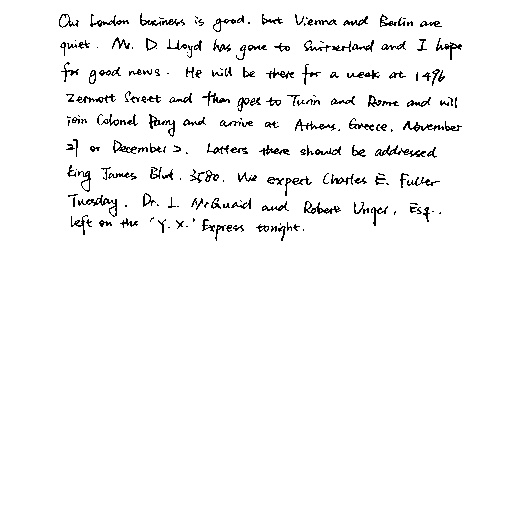 Our London business is good, but Vienna and Berlin are
quiet. Mr. D. Lloyd has gone to Switzerland and I hope
for good news. He will be there for a week at 1496
Zermott Street and then goes to Turin and Rome and will
join Colonel Parry and arrive at Athens, Greece, November
27 or December 2. Letters there should be addressed
King James Blvd. 3580. We expect Charles E. Fuller
Tuesday. Dr. L. McQuaid and Robert Unger, Esq.,
left on the "Y.X." Express tonight.